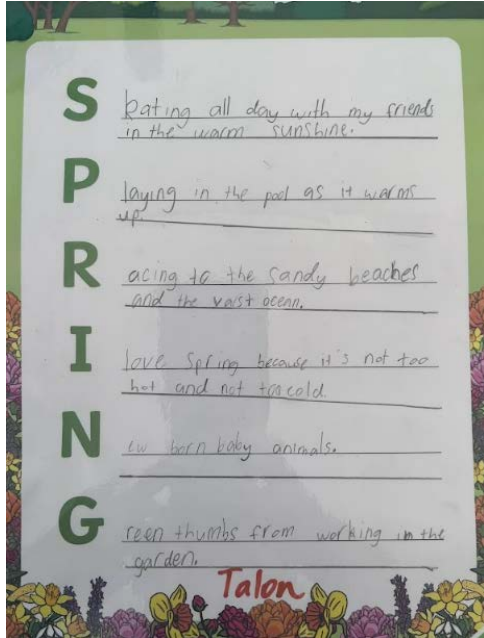 S kating all day with my friends
in the warm sunshine.
P laying in the pool as it warms
up.
R acing to the sandy beaches
and the vast ocean.
I love spring because it's not too
hot and not too cold.
N ew born baby animals.
G reen thumbs from working in the
garden.
Talon